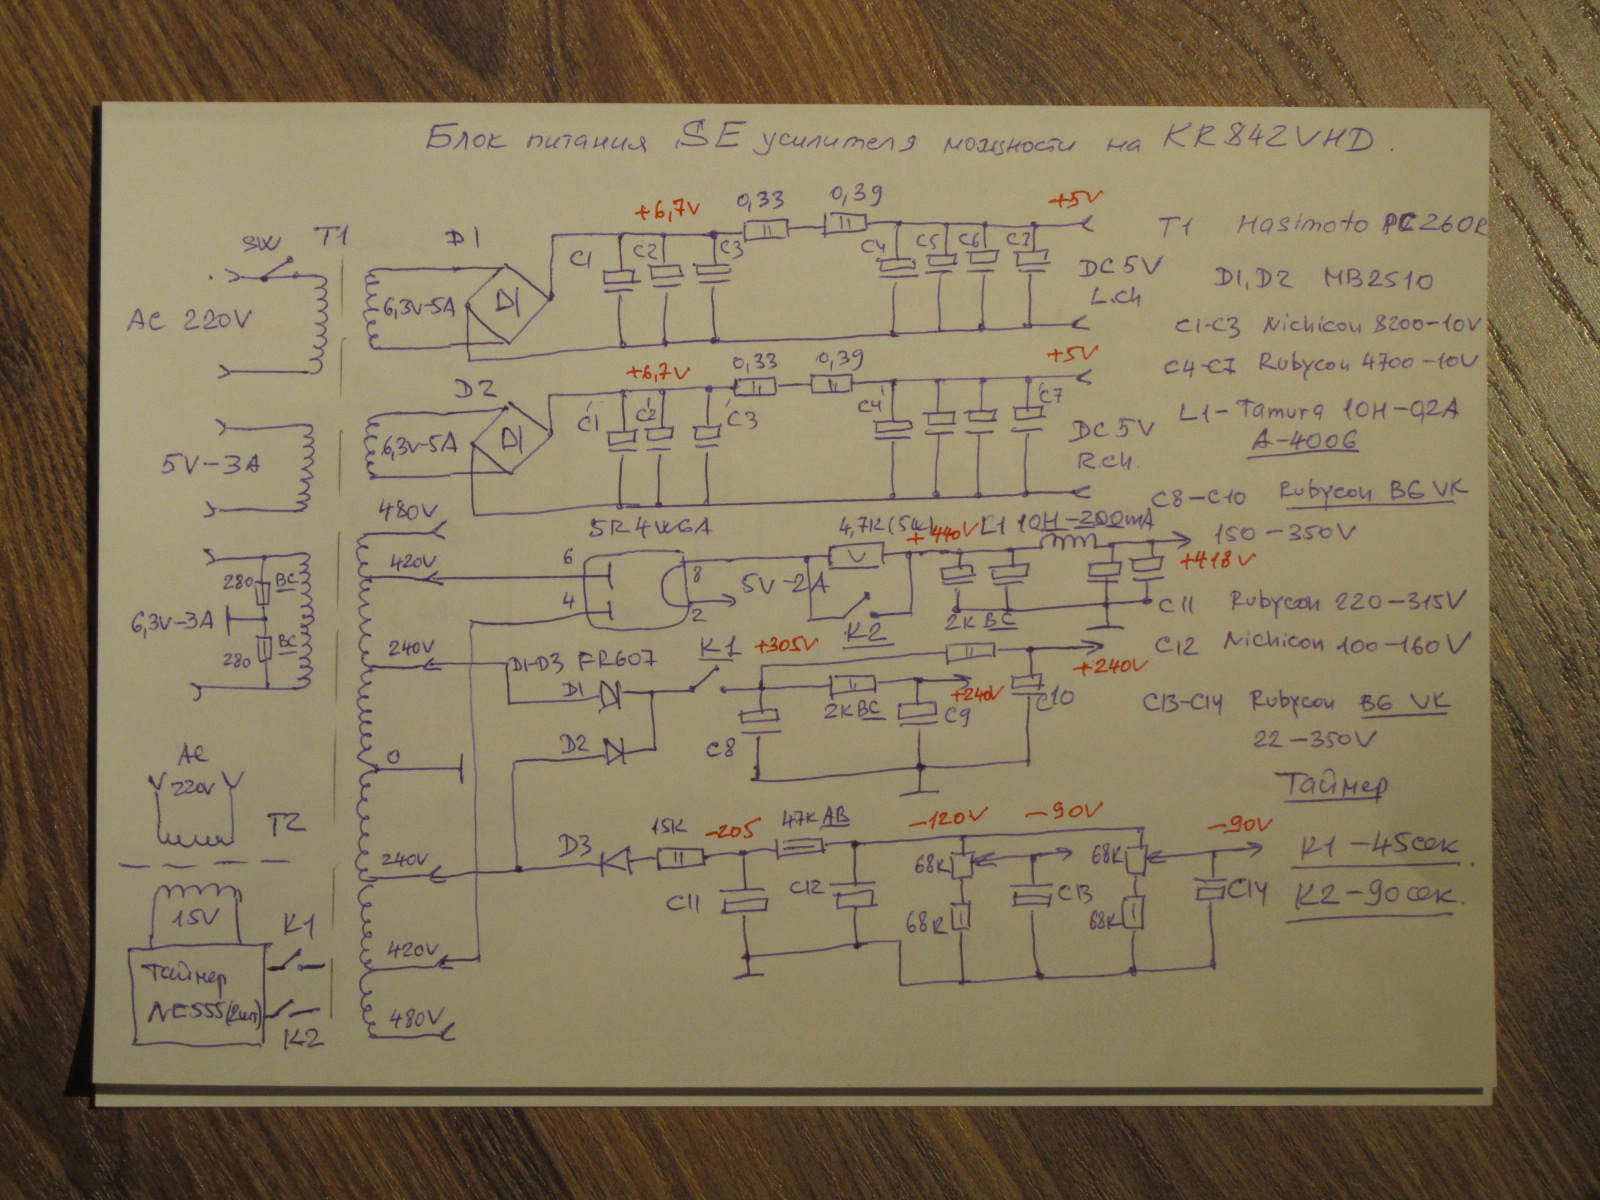 Блок питания SE усилителя мощности на KR842VHD.
SW T1
AC 220V
5V-3A
280 BC
6,3V-3A
280 BC
AC
220V
T2
15V
K1
Таймер
NE555(2шт)
K2
D1
6,3V-5A
D1
C1 C2 C3
+6,7V
0,33 0,39
C4 C5 C6 C7
+5V
DC 5V
L.ch
D2
6,3V-5A
D1
C'1 C'2 C'3
+6,7V
0,33 0,39
C'4 C'7
+5V
DC 5V
R.ch.
480V
420V
240V
0
240V
420V
480V
5R4WGA
6
4
8
2
5V-2A
4,7K(5W)
K2
+440V
L1 10H-200mA
+418V
2K BC
D1-D3 FR607
D1
D2
K1
+305V
2K BC
+240V
+240V
C8 C9 C10
D3
15K
-205
47K AB
-120V
-90V
-90V
C11 C12
68K
68K
C13
68K
68K
C14
T1 Hasimoto PC260R
D1,D2 MB2510
C1-C3 Nichicon 8200-10V
C4-C7 Rubycon 4700-10V
L1-Tamura 10H-0,2A
A-4006
C8-C10 Rubycon BG VK
150-350V
C11 Rubycon 220-315V
C12 Nichicon 100-160V
C13-C14 Rubycon BG VK
22-350V
Таймер
K1-45сек.
K2-90сек.